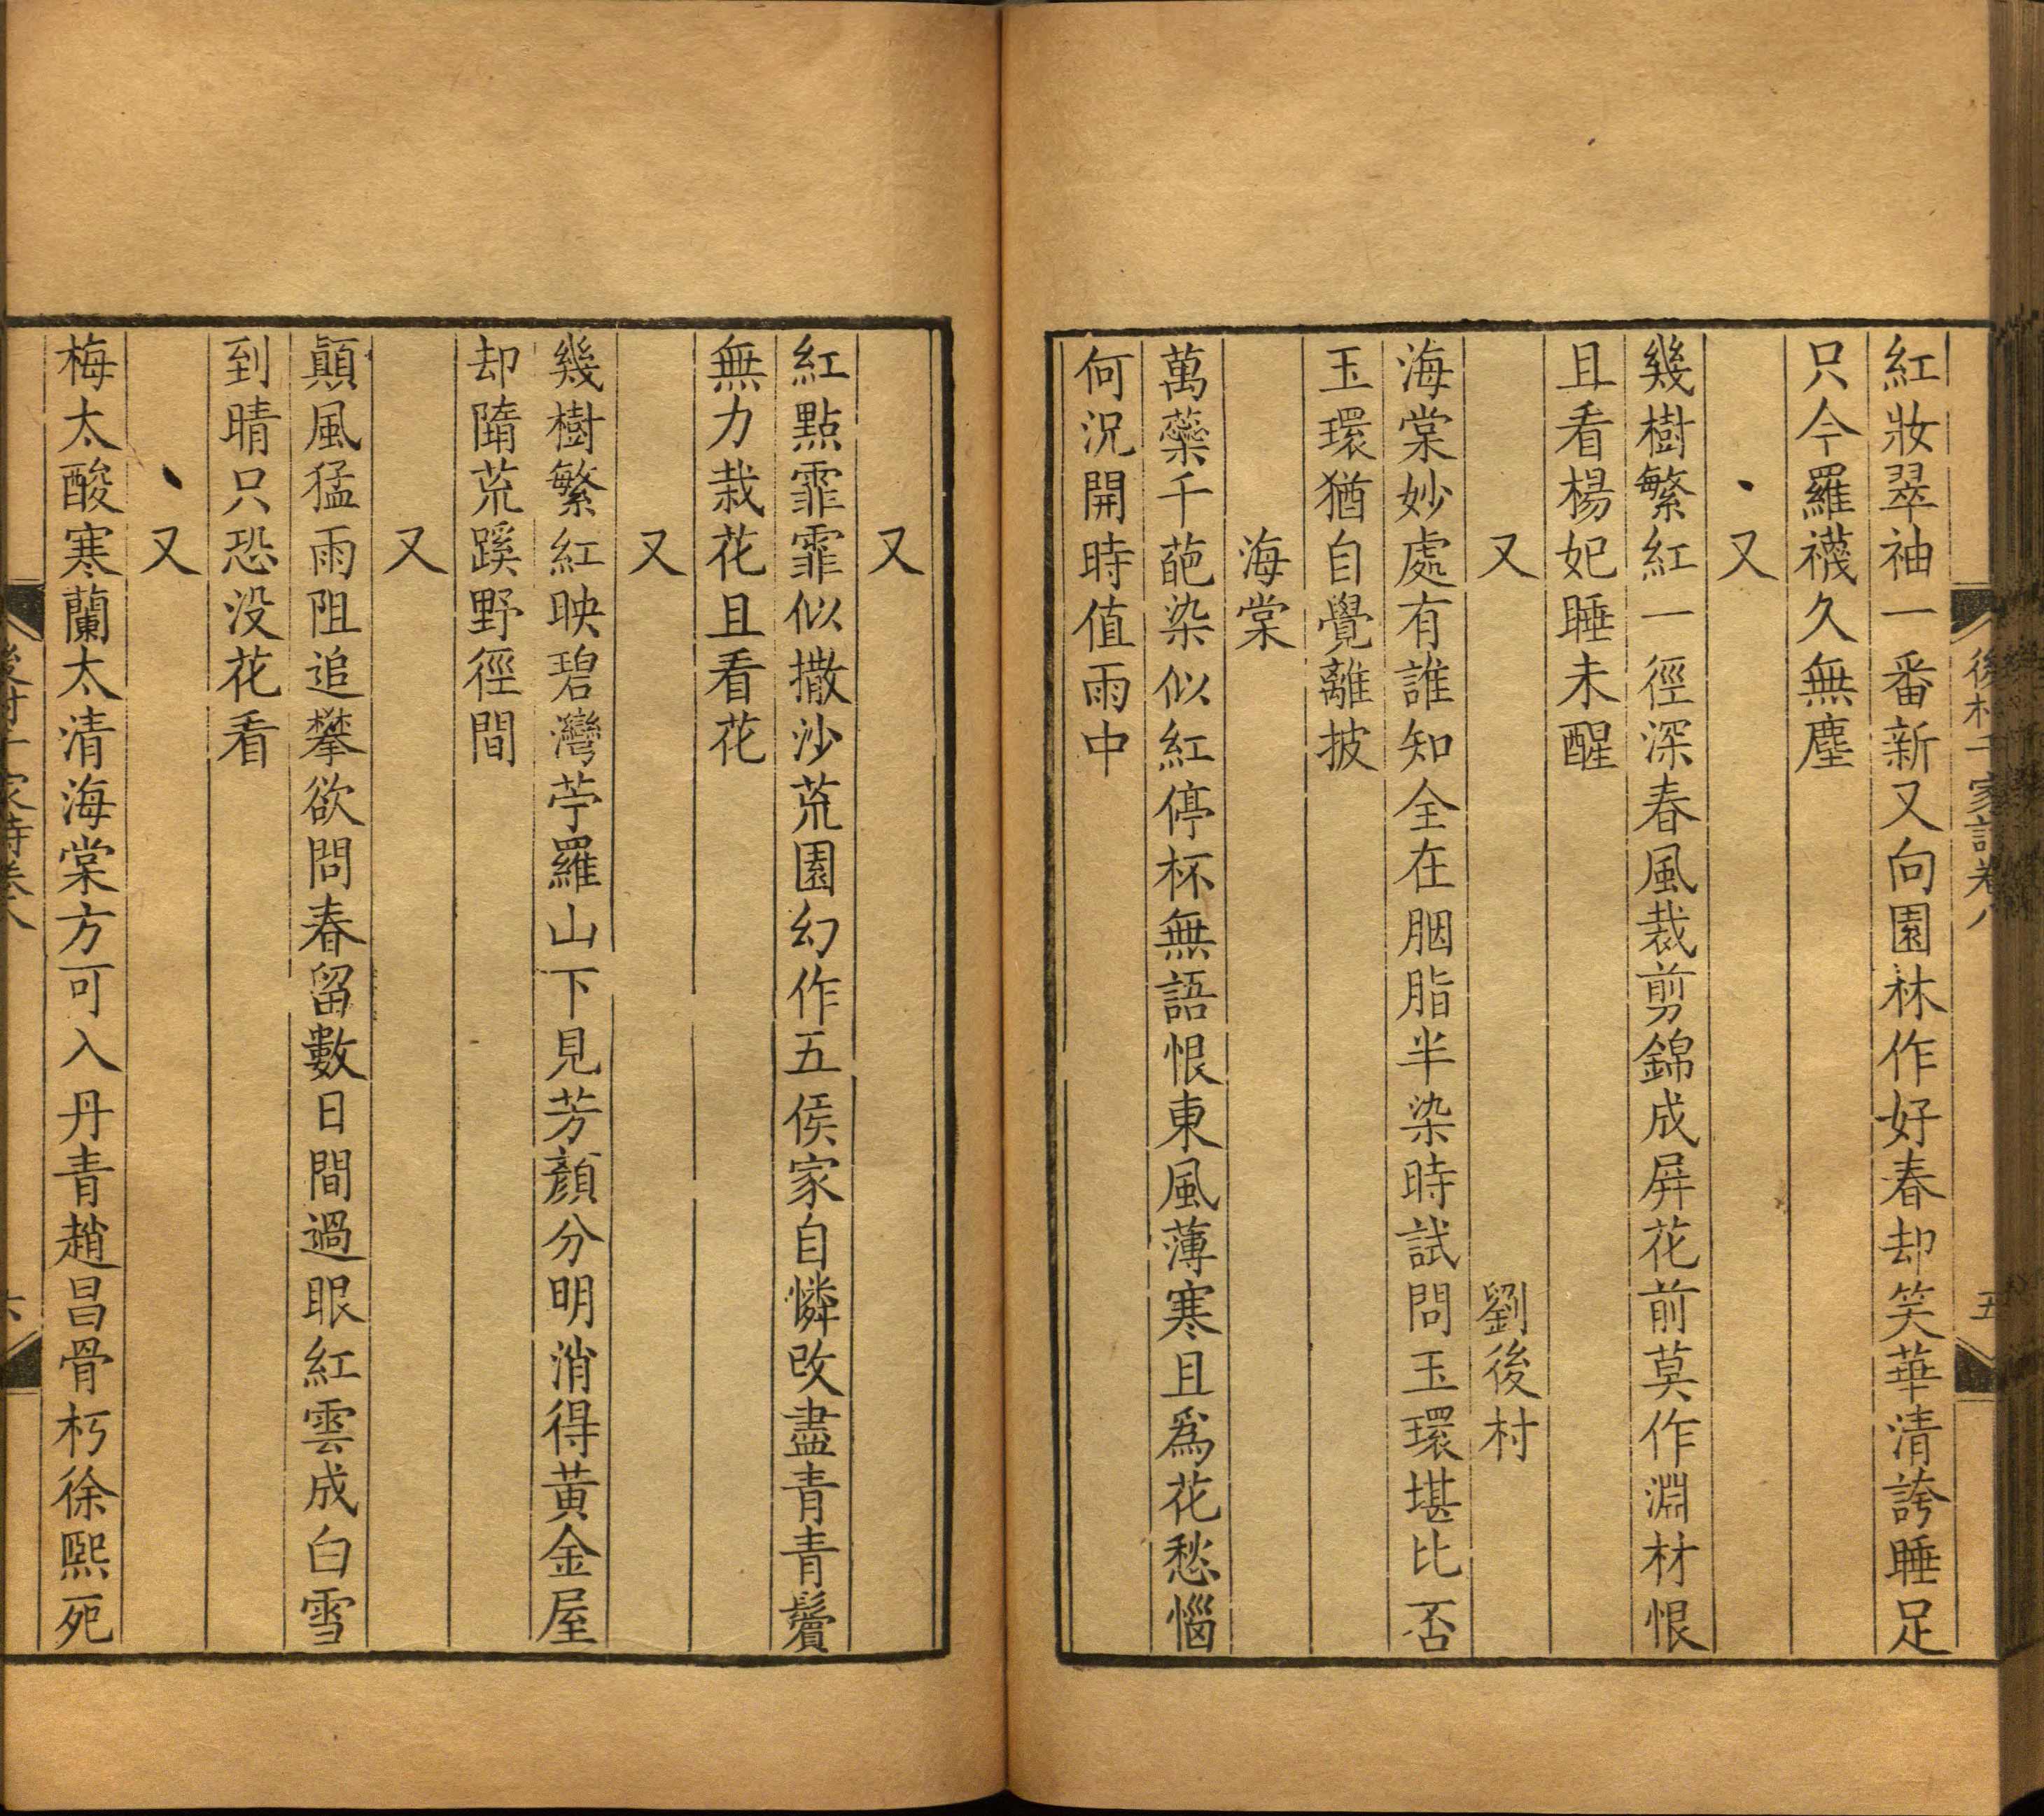 後村千家詩卷八
五
紅妝翠袖一番新又向園林作好春却笑華清誇睡足
只今羅襪久無塵
又
幾樹繁紅一徑深春風裁剪錦成屏花前莫作淵材恨
且看楊妃睡未醒
又 劉後村
海棠妙處有誰知全在胭脂半染時試問玉環堪比否
玉環猶自覺離披
海棠
萬蘂千葩染似紅停杯無語恨東風薄寒且爲花愁惱
何況開時值雨中
又
紅點霏霏似撒沙荒園幻作五侯家自憐改盡青青鬢
無力栽花且看花
又
幾樹繁紅映碧灣苧羅山下見芳顏分明消得黃金屋
却隋荒蹊野徑間
又
顚風猛雨阻追攀欲問春留數日間過眼紅雲成白雪
到晴只恐没花看
又
梅太酸寒蘭太清海棠方可入丹青趙昌骨朽徐熙死
後村千家詩卷八
六